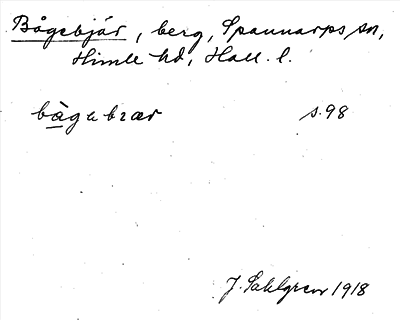 Bågebjär, berg, Spannarps sn,
Himle hd, Hall. l.
bàgabrær s. 98
J. Sahlgren 1918